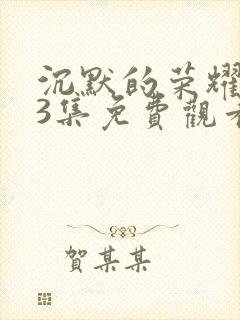 沉默的荣耀
3集免費觀看
賀某某